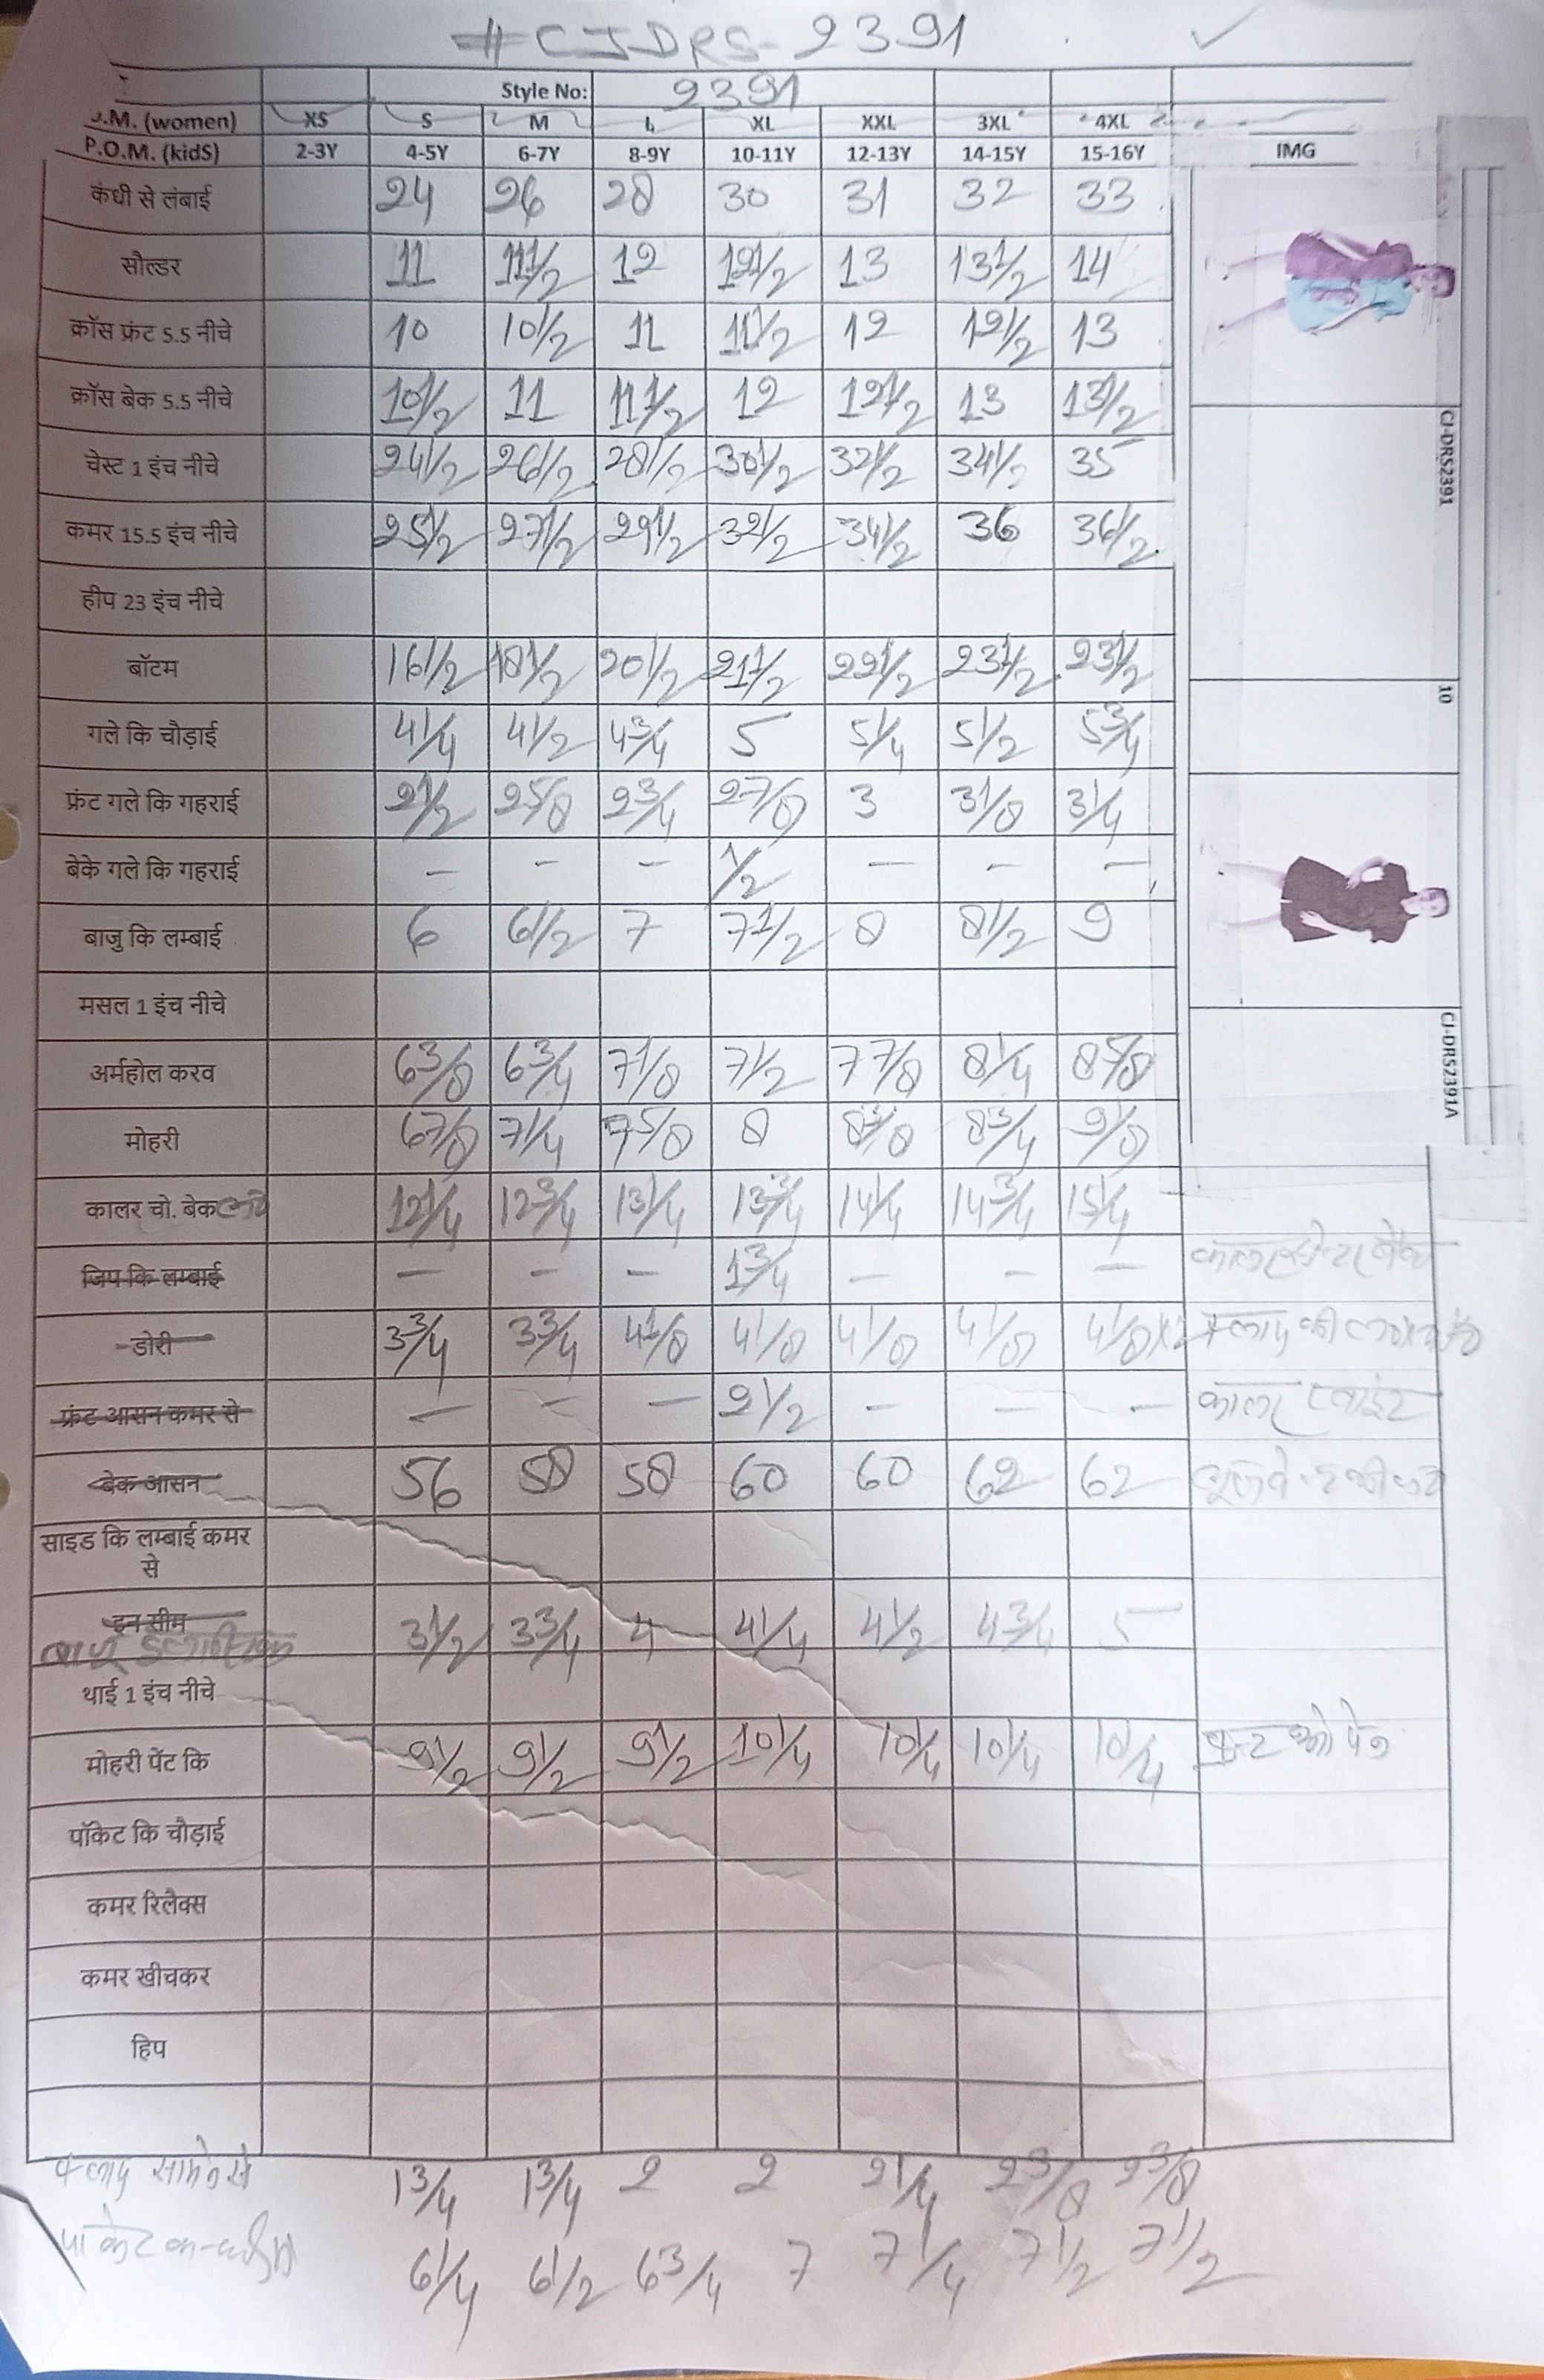 #CJDRS-2391
Style No: 2391
.M. (women) XS S M L XL XXL 3XL 4XL
P.O.M. (kidS) 2-3Y 4-5Y 6-7Y 8-9Y 10-11Y 12-13Y 14-15Y 15-16Y IMG
कंधी से लंबाई 24 26 28 30 31 32 33
सौल्डर 11 11 1/2 12 12 1/2 13 13 1/2 14
क्रॉस फ्रंट 5.5 नीचे 10 10 1/2 11 11 1/2 12 12 1/2 13
क्रॉस बेक 5.5 नीचे 10 1/2 11 11 1/2 12 12 1/2 13 13 1/2
चेस्ट 1 इंच नीचे 24 1/2 26 1/2 28 1/2 30 1/2 32 1/2 34 1/2 35
कमर 15.5 इंच नीचे 25 1/2 27 1/2 29 1/2 32 1/2 34 1/2 36 36 1/2
हीप 23 इंच नीचे
बॉटम 16 1/2 18 1/2 20 1/2 21 1/2 22 1/2 23 1/2 23 1/2
गले कि चौड़ाई 4 1/4 4 1/2 4 3/4 5 5 1/4 5 1/2 5 3/4
फ्रंट गले कि गहराई 2 1/2 2 5/8 2 3/4 2 7/8 3 3 1/8 3 1/4
बेके गले कि गहराई - - - 1/2 - - -
बाजु कि लम्बाई 6 6 1/2 7 7 1/2 8 8 1/2 9
मसल 1 इंच नीचे
अर्महोल करव 6 3/8 6 3/4 7 1/8 7 1/2 7 7/8 8 1/4 8 5/8
मोहरी 6 7/8 7 1/4 7 5/8 8 8 3/8 8 3/4 9 1/8
कालर चो. बेक 12 1/4 12 3/4 13 1/4 13 3/4 14 1/4 14 3/4 15 1/4
जिप कि लम्बाई - - - 1 3/4 - - -
डोरी 3 3/4 3 3/4 4 1/8 4 1/8 4 1/8 4 1/8 4 1/8
फ्रंट आसन कमर से - - - 2 1/2 - - - कालर प्वाइंट
बेक आसन 56 58 58 60 60 62 62
साइड कि लम्बाई कमर
से
इन सीम 3 1/2 3 3/4 4 4 1/4 4 1/2 4 3/4 5
बाजू इलास्टिक
थाई 1 इंच नीचे
मोहरी पेंट कि 9 1/2 9 1/2 9 1/2 10 1/4 10 1/4 10 1/4 10 1/4 फ्रन्ट ओपन
पॉकेट कि चौड़ाई
कमर रिलैक्स
कमर खीचकर
हिप
फ्लाप सामने से 1 3/4 1 3/4 2 2 2 1/4 2 3/8 2 3/8
पाकेट 6 1/4 6 1/2 6 3/4 7 7 1/4 7 1/2 7 1/2
CJ-DRS2391
10
CJ-DRS2391A